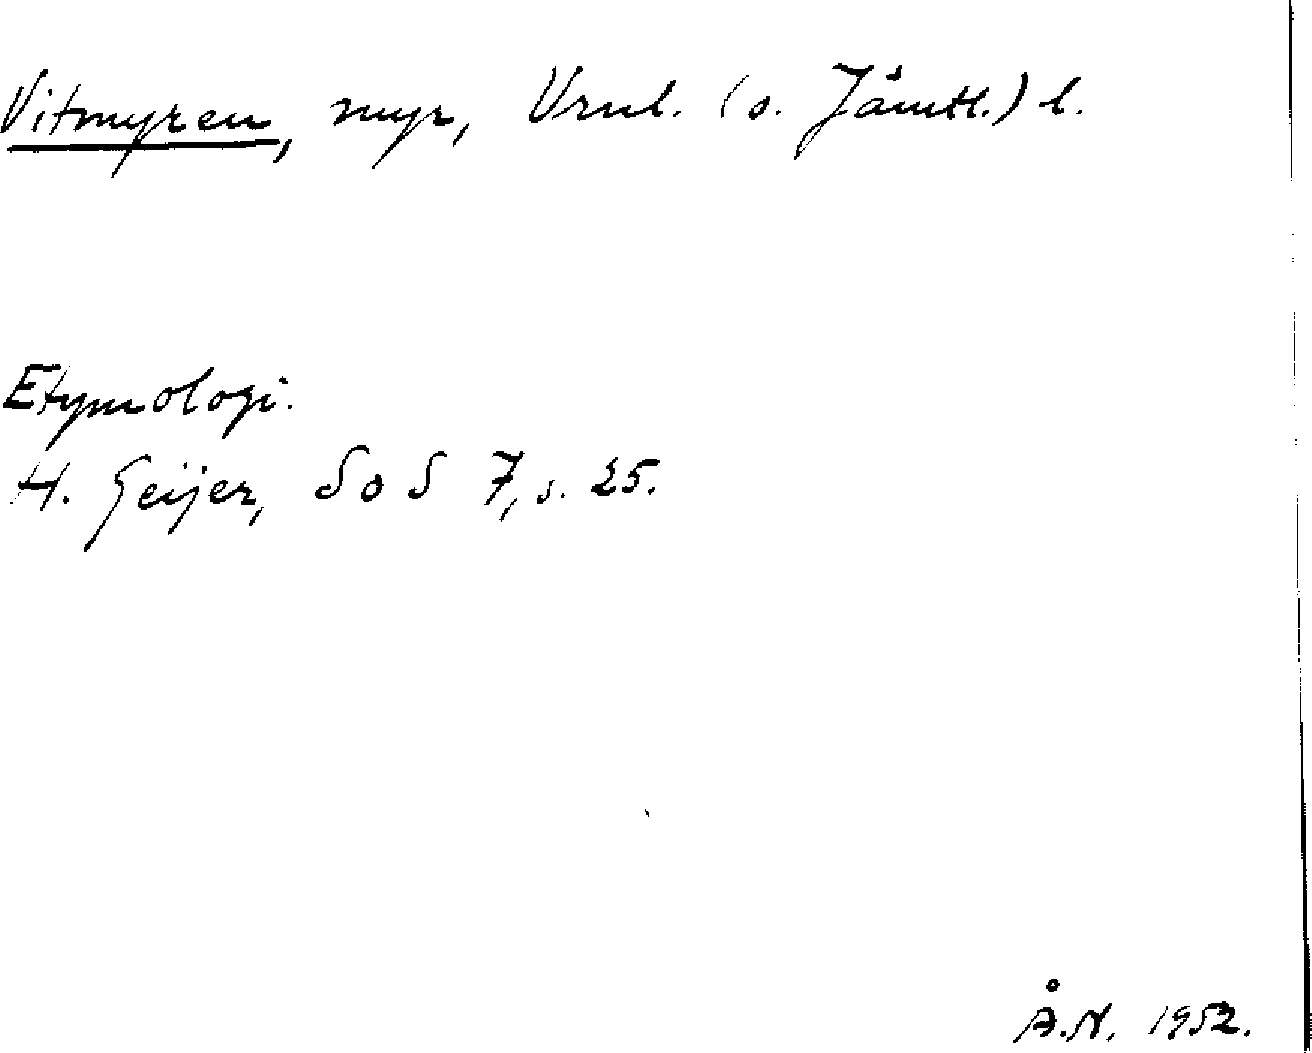 Vitmyren, myr, Vrml. (o. Jämtl.) l.
Etymologi.
H. Geijer, SoS 7, s. 25.
Å.N. 1952.